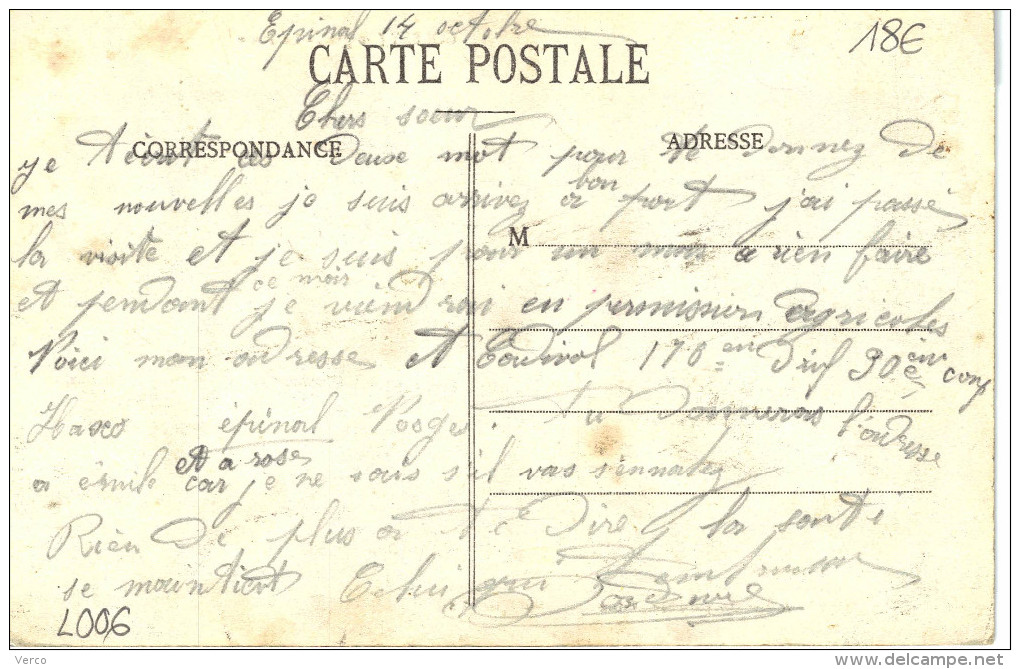 Epinal 14 octobre
18€
CARTE POSTALE
Chers soeur
CORRESPONDANCE
ADRESSE
je t'écrit ces deuse mot pour te donnez de
mes nouvelles je suis arrivez a bon port j'ai passé
M
la visite et je suis pour un mois a rien faire
et pendant ce mois je viendrai en permission agricoles
Voici mon adresse 170 30 comp
épinal Vosges tu donneras l'adresse
a émile et a rose car je ne sais s'il vas
Rien de plus a te dire la santé
se maintient Celui qui
L006
Verco
www.delcampe.net